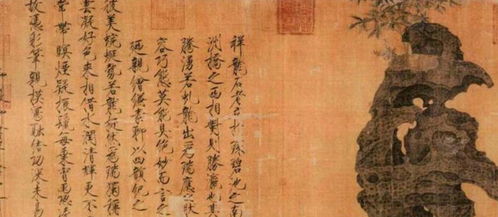 祥龍石者立於環碧池之南
洲橋之西相對則勝瀛也其
騰湧若虬龍出為瑞應之狀
容巧態莫能具絕妙而言之
廼親繪縑素聊以四韻紀之
彼美蜿蜒勢若龍挺然為瑞獨稱
雲凝好色來相借水潤清輝更不
常帶暝煙疑振鬣每乘宵雨恐凌
故憑彩筆親模寫融結功深未易